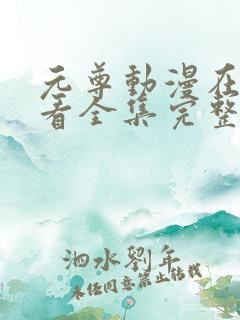 元尊動漫在
看全集完整
泗水劉年
未经同意禁止转载